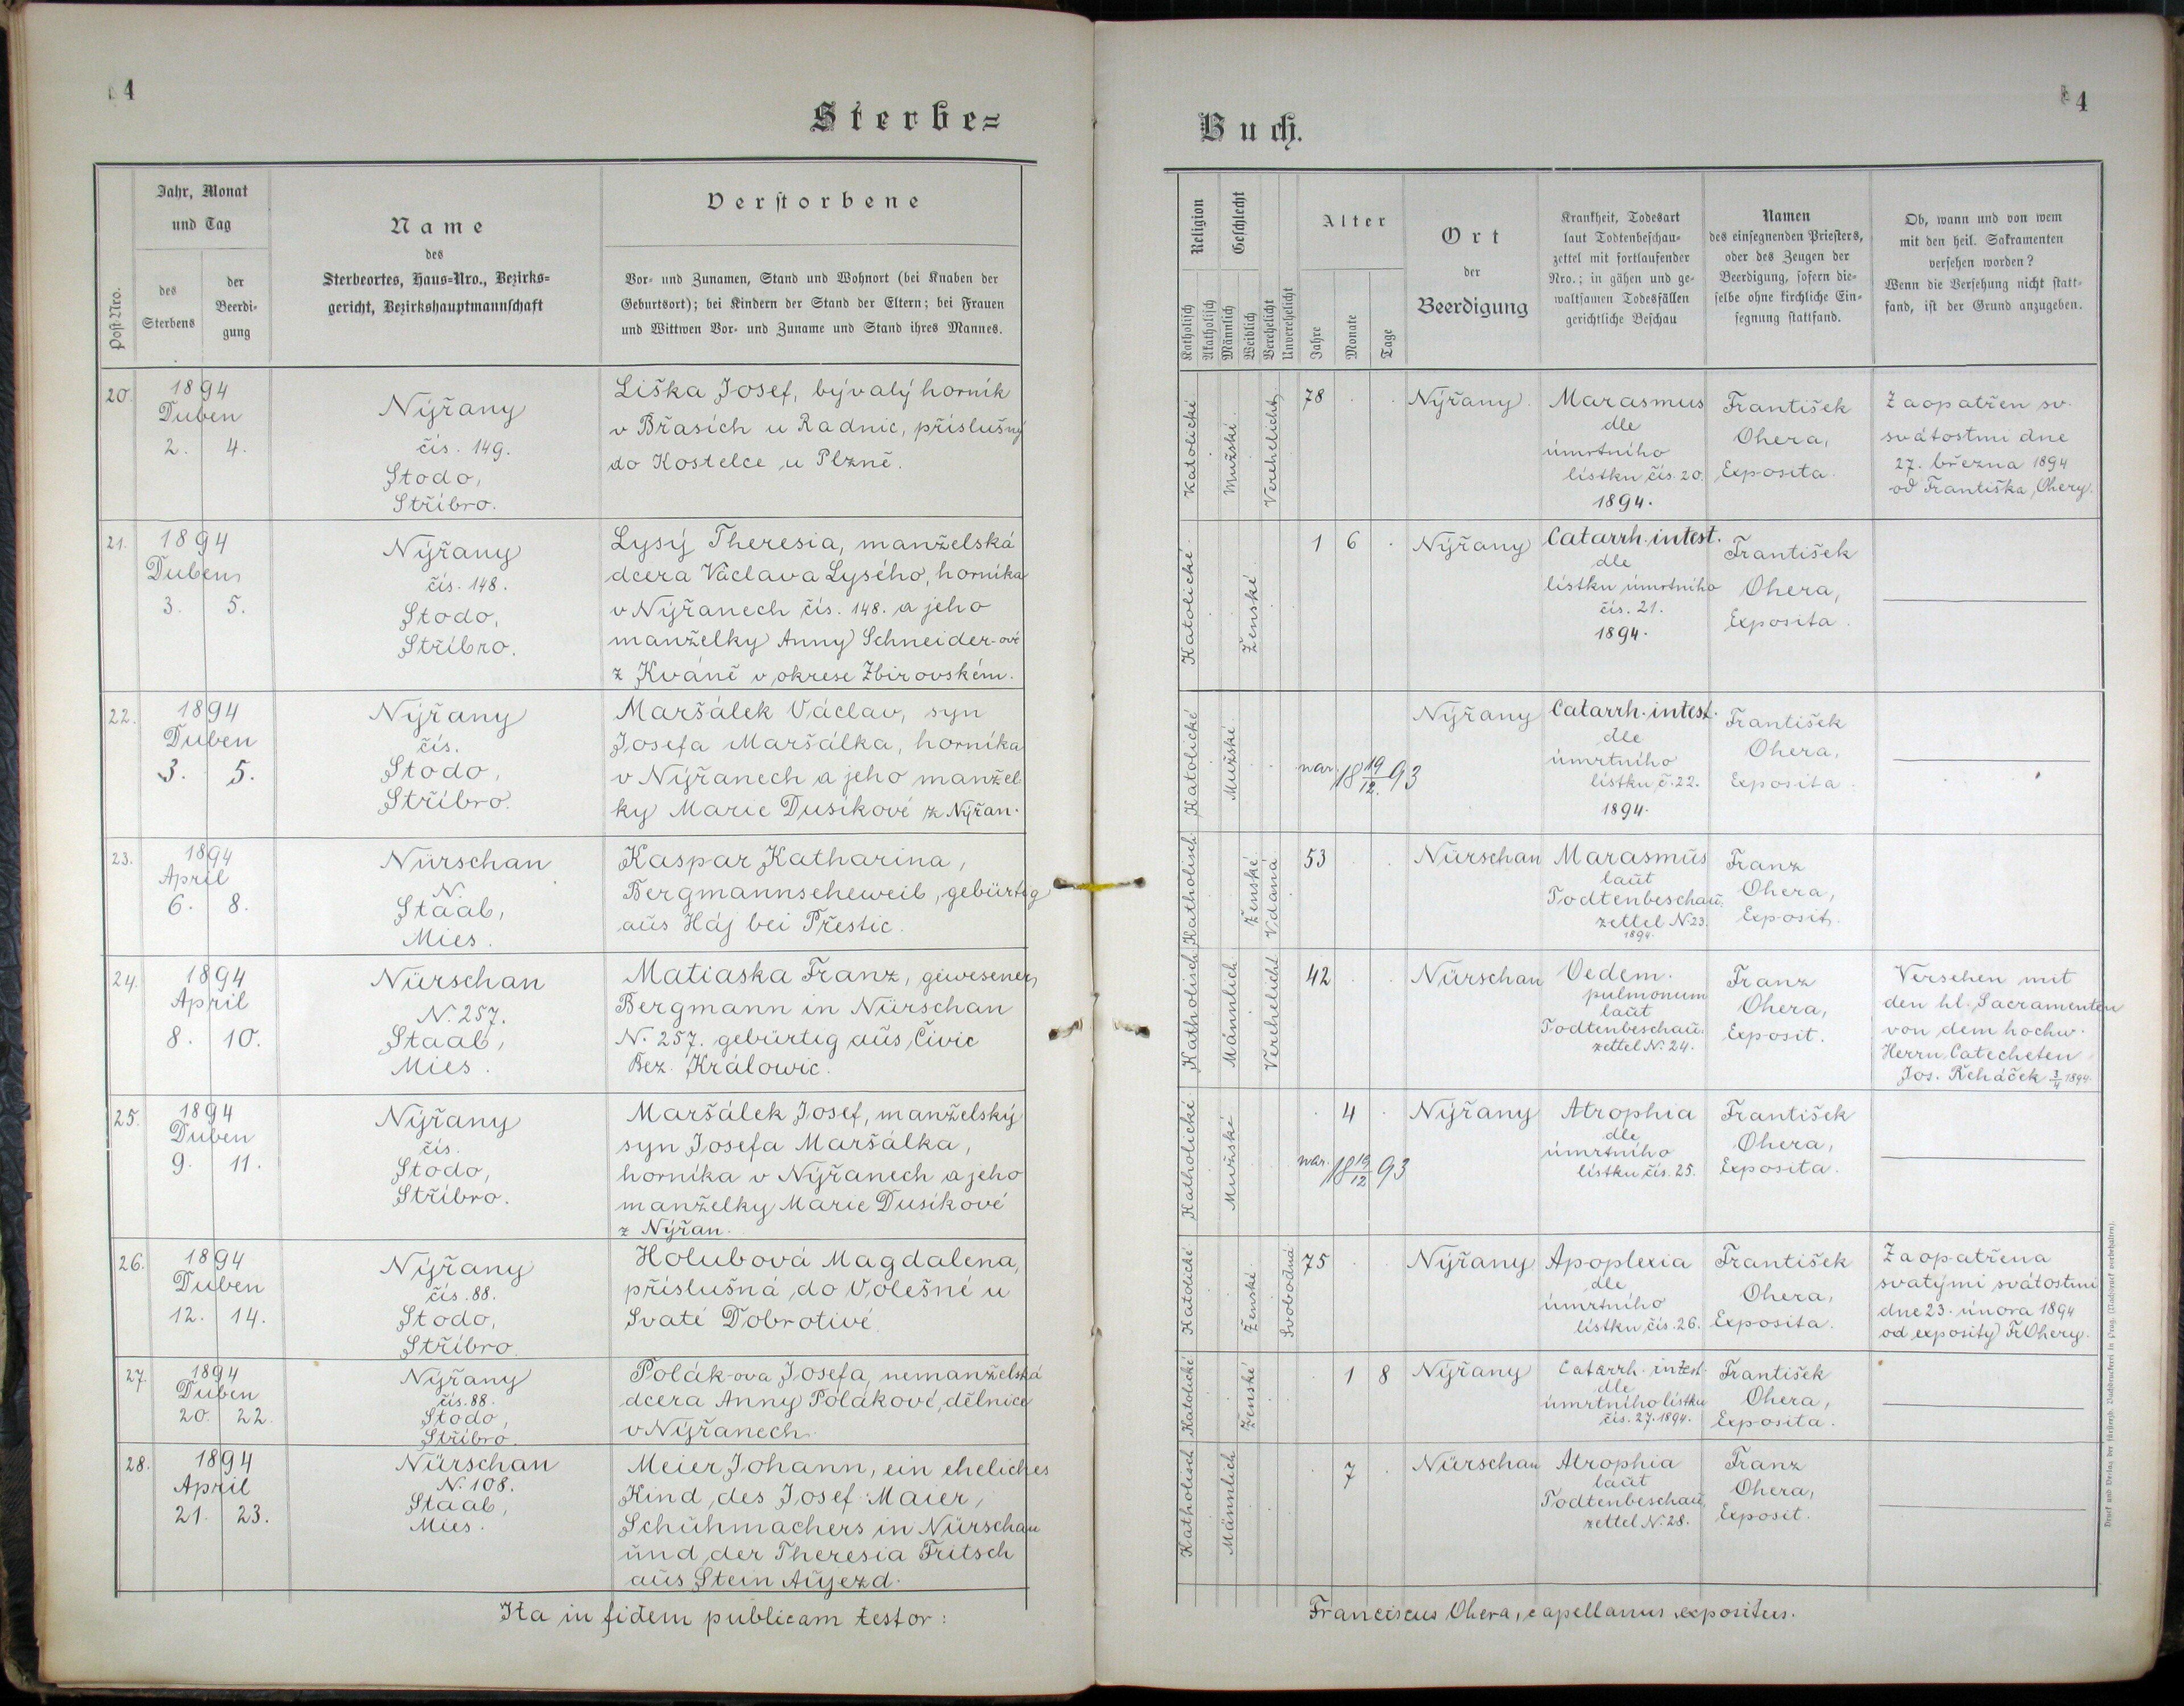 4
Sterbe=
Post-Nro.
Jahr, Monat
und Tag
des
Sterbens
der
Beerdi-
gung
Name
des
Sterbeortes, Haus=Nro., Bezirks=
gericht, Bezirkshauptmannschaft
Verstorbene
Vor- und Zunamen, Stand und Wohnort (bei Knaben der
Geburtsort); bei Kindern der Stand der Eltern; bei Frauen
und Wittwen Vor- und Zuname und Stand ihres Mannes.
20.
1894
Duben
2. 4.
Nýřany
čís. 149.
Stodo,
Stříbro.
Liška Josef, bývalý horník
v Břasích u Radnic, příslušný
do Kostelce u Plzně.
21.
1894
Duben
3. 5.
Nýřany
čís. 148.
Stodo,
Stříbro.
Lysý Theresia, manželská
dcera Václava Lysého, horníka
v Nýřanech čís. 148. a jeho
manželky Anny Schneider-ové
z Kváně v okrese Zbirovském.
22.
1894
Duben
3. 5.
Nýřany
čís.
Stodo,
Stříbro.
Maršálek Václav, syn
Josefa Maršálka, horníka
v Nýřanech a jeho manžel
ky Marie Dusíkové z Nýřan.
23.
1894
April
6. 8.
Nürschan
N.
Staab,
Mies.
Kaspar Katharina,
Bergmannseheweib, gebürtig
aus Háj bei Přestic.
24.
1894
April
8. 10.
Nürschan
N. 257.
Staab,
Mies.
Matiaska Franz, gewesener
Bergmann in Nürschan
N. 257. gebürtig aus Čivic
Bez. Králowic.
25.
1894
Duben
9. 11.
Nýřany
čís.
Stodo,
Stříbro.
Maršálek Josef, manželský
syn Josefa Maršálka,
horníka v Nýřanech a jeho
manželky Marie Dusíkové
z Nýřan.
26.
1894
Duben
12. 14.
Nýřany
čís. 88.
Stodo,
Stříbro.
Holubová Magdalena,
příslušná do Volešné u
Svaté Dobrotivé.
27.
1894
Duben
20. 22.
Nýřany
čís. 88.
Stodo,
Stříbro.
Polák-ova Josefa, nemanželská
dcera Anny Polákové, dělnice
v Nýřanech.
28.
1894
April
21. 23.
Nürschan
N. 108.
Staab,
Mies.
Meier Johann, ein eheliches
Kind des Josef Maier,
Schuhmachers in Nürschau
und der Theresia Fritsch
aus Stein Aujezd.
Ita in fidem publicam testor:
4
Buch.
Religion
Katholisch
Akatholisch
Geschlecht
Männlich
Weiblich
Verehelicht
Unverehelicht
Alter
Jahre
Monate
Tage
Ort
der
Beerdigung
Krankheit, Todesart
laut Todtenbeschau-
zettel mit fortlaufender
Nro.; in gähen und ge-
waltsamen Todesfällen
gerichtliche Beschau
Namen
des einsegnenden Priesters,
oder des Zeugen der
Beerdigung, sofern die-
selbe ohne kirchliche Ein-
segnung stattfand.
Ob, wann und von wem
mit den heil. Sakramenten
versehen worden?
Wenn die Versehung nicht statt-
fand, ist der Grund anzugeben.
Katolické
Mužské
Verehelicht
78
Nýřany.
Marasmus
dle
úmrtního
lístku čís. 20.
1894.
František
Ohera,
Exposita.
Zaopatřen sv.
svátostmi dne
27. března 1894
od Františka Ohery.
Katolické
Ženské
1 6
Nýřany
Catarrh. intest.
dle
lístku úmrtního
čís. 21.
1894.
František
Ohera,
Exposita.
Katolické
Mužské
nar. 18 19/12. 93
Nýřany
Catarrh. intest.
dle
úmrtního
lístku č. 22.
1894.
František
Ohera,
Exposita.
Katholisch
Ženské
Vdaná
53
Nürschan
Marasmus
laut
Todtenbeschau
zettel N. 23.
1894.
Franz
Ohera,
Exposit.
Katholisch
Männlich
Verehelicht
42
Nürschan
Oedem.
pulmonum
laut
Todtenbeschau.
zettel N. 24.
Franz
Ohera,
Exposit.
Versehen mit
den hl. Sacramenten
von dem hochw.
Herrn Catecheten
Jos. Řeháček 3/4 1894.
Katholické
Mužské
4
nar. 18 19/12 93
Nýřany
Atrophia
dle
úmrtního
lístku čís. 25.
František
Ohera,
Exposita.
Katolické
Ženské
Svobodná
75
Nýřany
Apoplexia
dle
úmrtního
lístku čís. 26.
František
Ohera,
Exposita.
Zaopatřena
svatými svátostmi
dne 23. února 1894
od exposity Fr Ohery.
Katolické
Ženské
1 8
Nýřany
Catarrh. intest.
dle
úmrtního lístku
čís. 27. 1894.
František
Ohera,
Exposita.
Katholisch
Männlich
7
Nürschau
Atrophia
laut
Todtenbeschau,
zettel N. 28.
Franz
Ohera,
Exposit.
Franciscus Ohera, capellanus expositus.
Druck und Verlag der fürsterzb. Buchdruckerei in Prag. (Nachdruck vorbehalten).